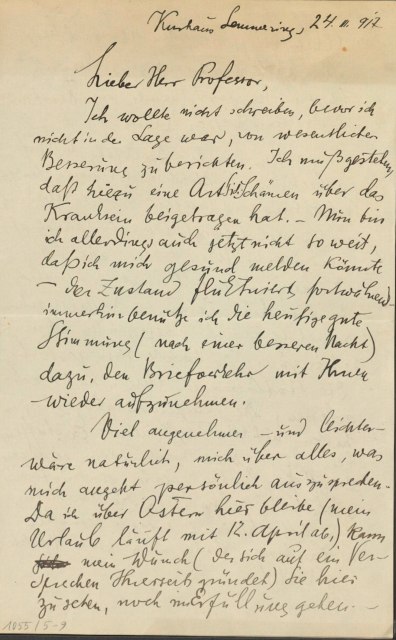 Kurhaus Semmering, 24. III. 917
Lieber Herr Professor,
Ich wollte nicht schreiben, bevor ich
nicht in der Lage war, von wesentlicher
Besserung zu berichten. Ich muß gestehen,
daß hiezu eine Art Sich Schämen über das
Kranksein beigetragen hat. – Nun bin
ich allerdings auch jetzt nicht so weit,
daß ich mich gesund melden könnte
– der Zustand fluktuiert fortwährend –
immerhin benütze ich die heutige gute
Stimmung (nach einer besseren Nacht)
dazu, den Briefverkehr mit Ihnen
wieder aufzunehmen.
Viel angenehmer – und leichter –
wäre natürlich, mich über alles, was
mich angeht persönlich auszusprechen.
Da ich über Ostern hier bleibe (mein
Urlaub läuft mit 12. April ab,) kann
mein Wunsch (der sich auf ein Ver-
sprechen Ihrerseits gründet) Sie hier
zu sehen, noch in Erfüllung gehen. –
1055/5-9